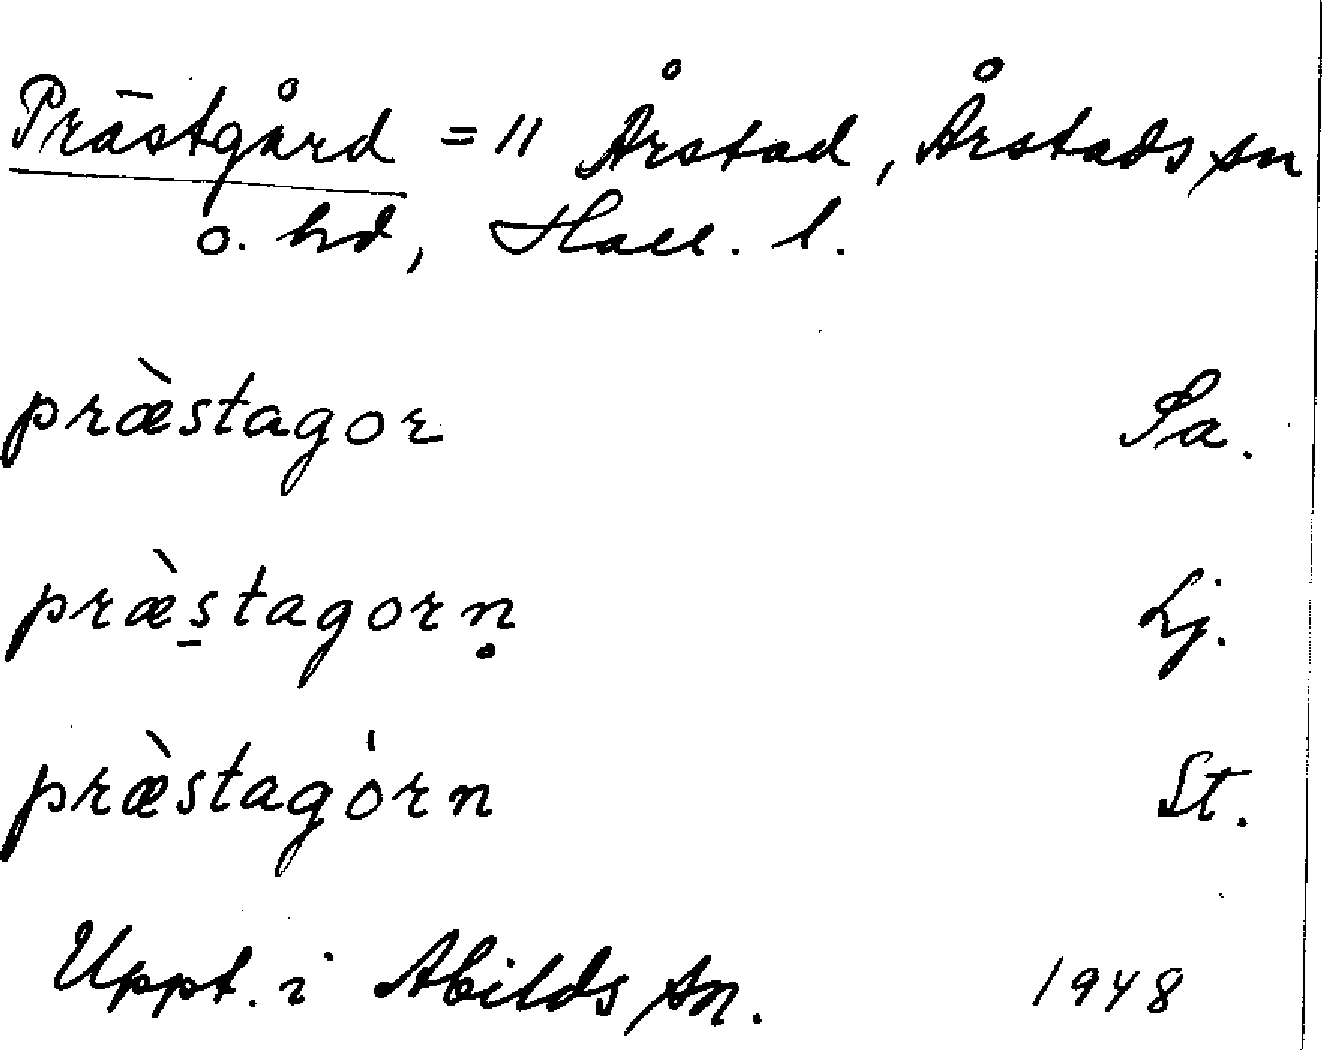 Prästgård = 11 Årstad, Årstads sn
o. hd, Hall. l.
præ̀stagor Sa.
præ̀s̱tagorṇ Lj.
præ̀stagȯ́rn St.
Uppt. i Abilds sn. 1948